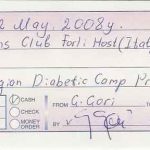 2 May. 2008y.
ns Club Forli. Host (Ital
gion Diabetic Camp Pr
CASH
CHECK
MONEY ORDER
FROM G. Gori
BY